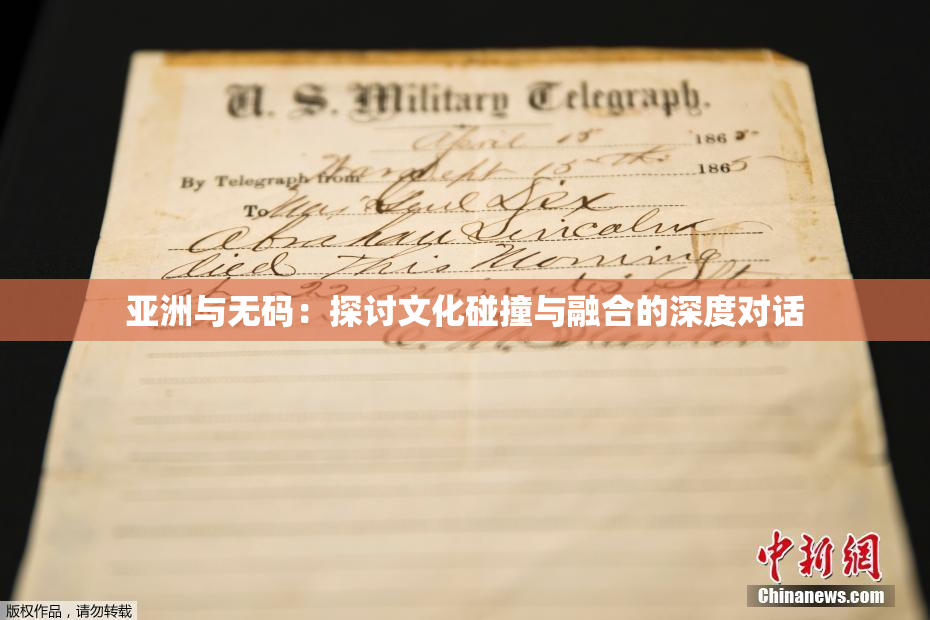 U. S. Military Telegraph.
April 15 1865.
By Telegraph from War Dept 15th 1865
To Maj Genl Dix
Abraham Lincoln
died This Morning
at 22 minutes after
亚洲与无码：探讨文化碰撞与融合的深度对话
E. M. Stanton
中新网
Chinanews.com
版权作品，请勿转载